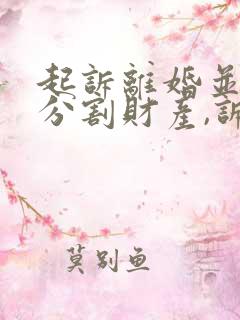 起訴離婚並
分割財產,訴
莫別魚